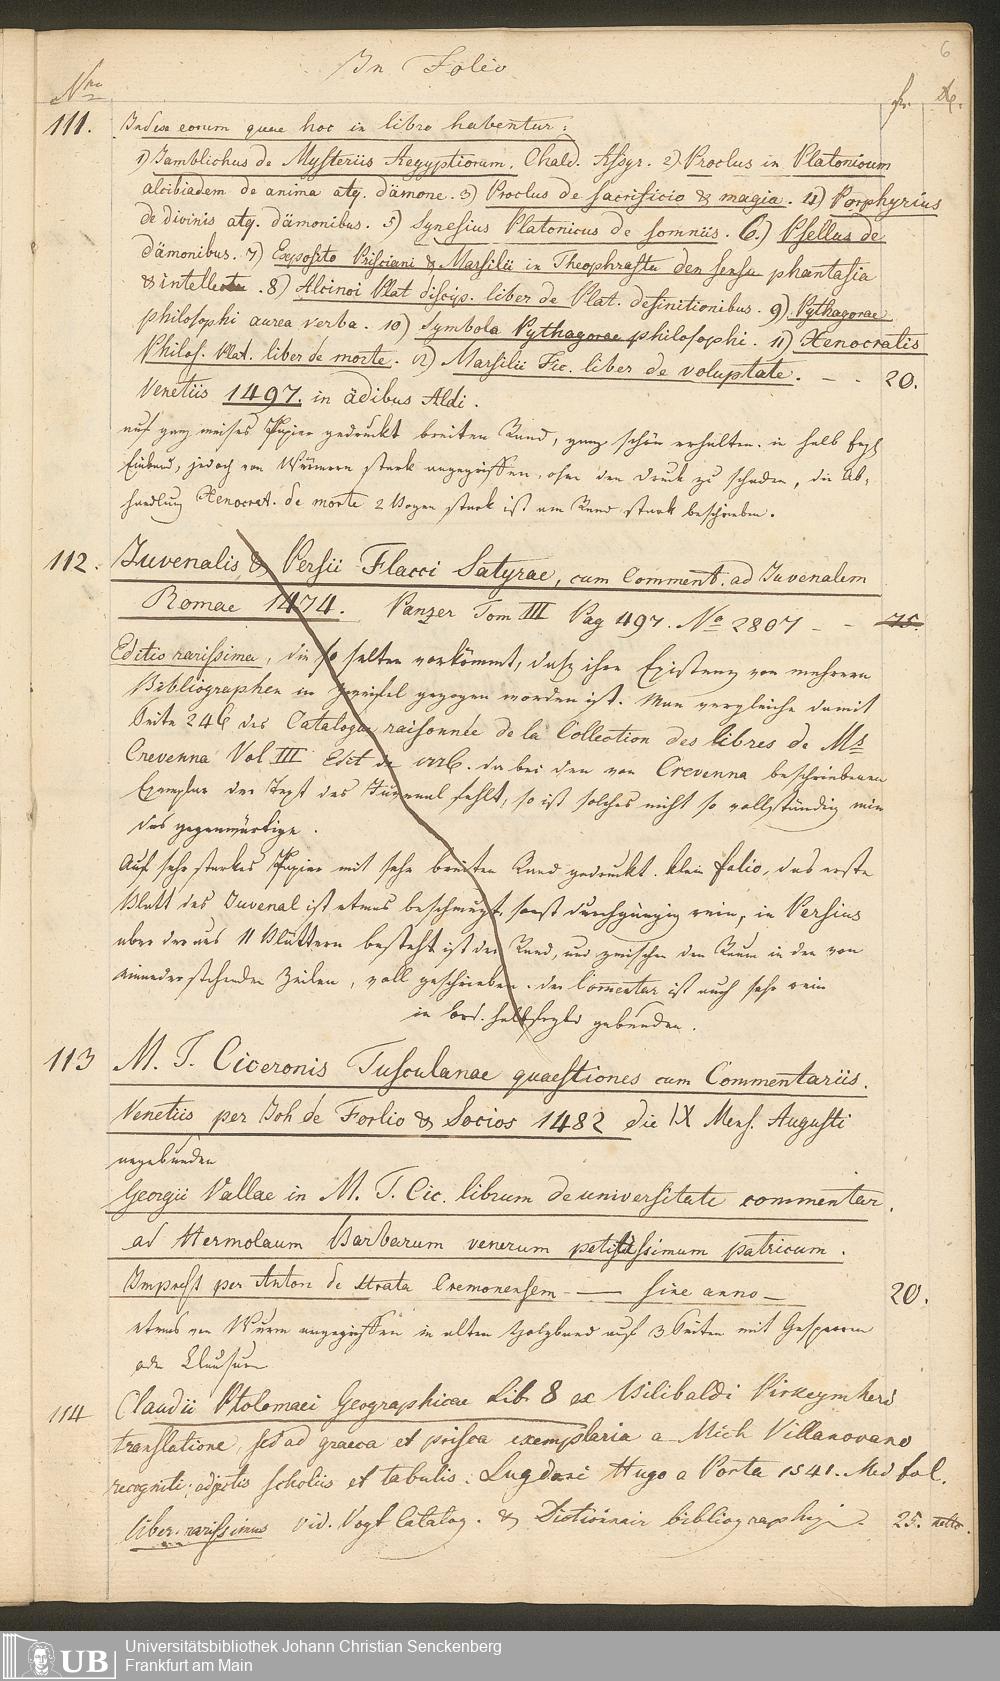 6
In Folio
Nro
fr. Xr.
111. Index eorum quae hoc in libro habentur:
1) Jamblichus de Mysteriis Aegyptiorum. Chald. Assyr. 2) Proclus in Platonicum
alcibiadem de anima atq. dämone. 3) Proclus de sacrificio & magia. 4) Porphyrius
de divinis atq. dämonibus. 5) Synesius Platonicus de somniis. 6.) Psellus de
dämonibus. 7) Exposito Prisciani & Marsilii in Theophrastu den sensu phantasia
& intellectu. 8) Alcinoi Plat discip. liber de Plat. definitionibus. 9) Pythagorae
philosophi aurea verba. 10) Symbola Pythagorae philosophi. 11) Xenocratis
Philos. Plat. liber de morte. 12) Marsilii Fic. liber de voluptate. – - 20.
Venetiis 1497. in ädibus Aldi.
auf ganz weises Papier gedruckt breiten Rand, ganz schön erhalten. in halb
Einband, jedoch von Würmern stark angegriffen, ohne den Druck zu schaden, die Ab-
handlung Xenocrat. de morte 2 Bogen stark ist am Rand stark beschrieben.
112. Juvenalis & Persii Flacci Satyrae, cum Comment. ad Juvenalem
Romae 1474. Panzer Tom III Pag 497. No 2807 – - 75.
Editio rarissima, die so selten vorkömmt, daß ihre Existenz von mehrern
Bibliographen in Zweifel gezogen worden ist. Man vergleiche damit
Seite 246 des Catalogue raisonnée de la Collection des libres de Mr
Crevenna Vol III Edit de 1776. da bei den von Crevenna beschriebenen
Exemplar der Text des Juvenal fehlt, so ist solches nicht so vollständig wie
das gegenwärtige.
Auf sehr starkes Papier mit sehr breiten Rand gedruckt. klein folio, das erste
Blatt des Juvenal ist etwas beschmuzt, sonst durchgängig rein, in Persius
aber der aus 11 Blättern besteht ist der Rand, und zwischen den Raum in der von
einanderstehenden Zeilen, voll geschrieben. der Commentar ist auch sehr rein
in gebunden.
113 M. T. Ciceronis Tusculanae quaestiones cum Commentariis.
Venetiis per Joh de Forlio & Socios 1482 die IX Mens. Augusti
angebunden
Georgii Vallae in M. T. Cic. librum de universitate commentar.
ad Hermolaum Barbarum venerum patricum.
Impress per Anton de Strata Cremonensem – — sine anno – 20.
etwas von Wurm angegriffen in alten Holzband auf 3 Seiten mit Gesperren
oder Clausuren
114 Claudii Ptolomaei Geographicae Lib. 8 ex Bilibaldi Pirkeymheri
translatione, sed ad graeca et prisca exemplaria a Mich Villanovano
recogniti; adjectis scholiis et tabulis. Lugduni Hugo a Porta 1541. Med fol.
Liber rarissimus vid. Vogt Catalog. & Dictionnair bibliographiq. 25. netto.
UB Universitätsbibliothek Johann Christian Senckenberg
Frankfurt am Main